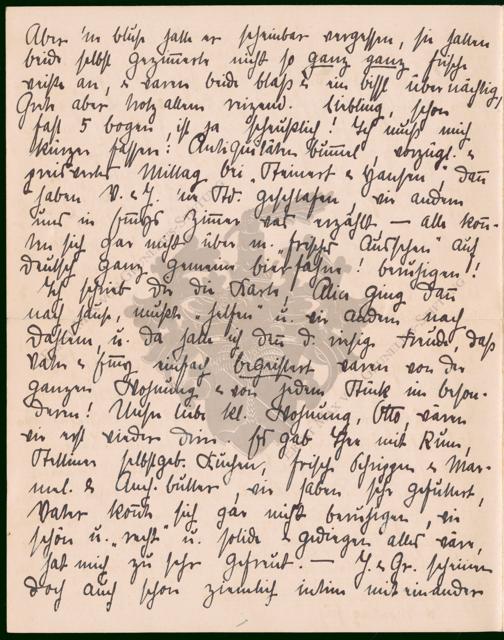 Aber 'ne Bluse hatte er scheinbar vergessen, sie hatten
beide selbst Gezimmerte nicht so ganz ganz frische
Wäsche an, & waren beide blaß & ein bissl übernächtig,
Grete aber trotz allem reizend. Liebling, schon
fast 5 Bogen, ist ja scheußlich! Ich muß mich
kürzer fassen! Antiquitäten-Bummel, vorzügl. &
preiswertes Mittag bei "Steinert & Hansen", dann
haben V. & J. 'ne Std. geschlafen, wir andern
uns in Zimmer was erzählt — alle konn-
ten sich gar nicht über m. "frisches Aussehen" auf
deutsch ganz gemein beruhigen!
Ich schrieb Dir die Karte! Alice ging dann
nach Hause, mußte "helfen" u. wir andern nach
Dahlem, u. da hatte ich denn d. riesige Freude, daß
Vater & einfach begeistert waren von der
ganzen Wohnung & von jedem Stück im beson-
deren! Unsre liebe kl. Wohnung, Otto, wären
wir erst wieder drin. Es gab Thee mit Rum,
Stettiner selbstgeb. Kuchen, frische Schrippen & Mar-
mel. & Butter, wir haben sehr gefuttert,
Vater konnte sich gar nicht beruhigen, wie
schön u. "recht" u. solide & gediegen alles wäre,
hat mich zu sehr gefreut. — J. & Gr. scheinen
doch auch schon ziemlich intim miteinander